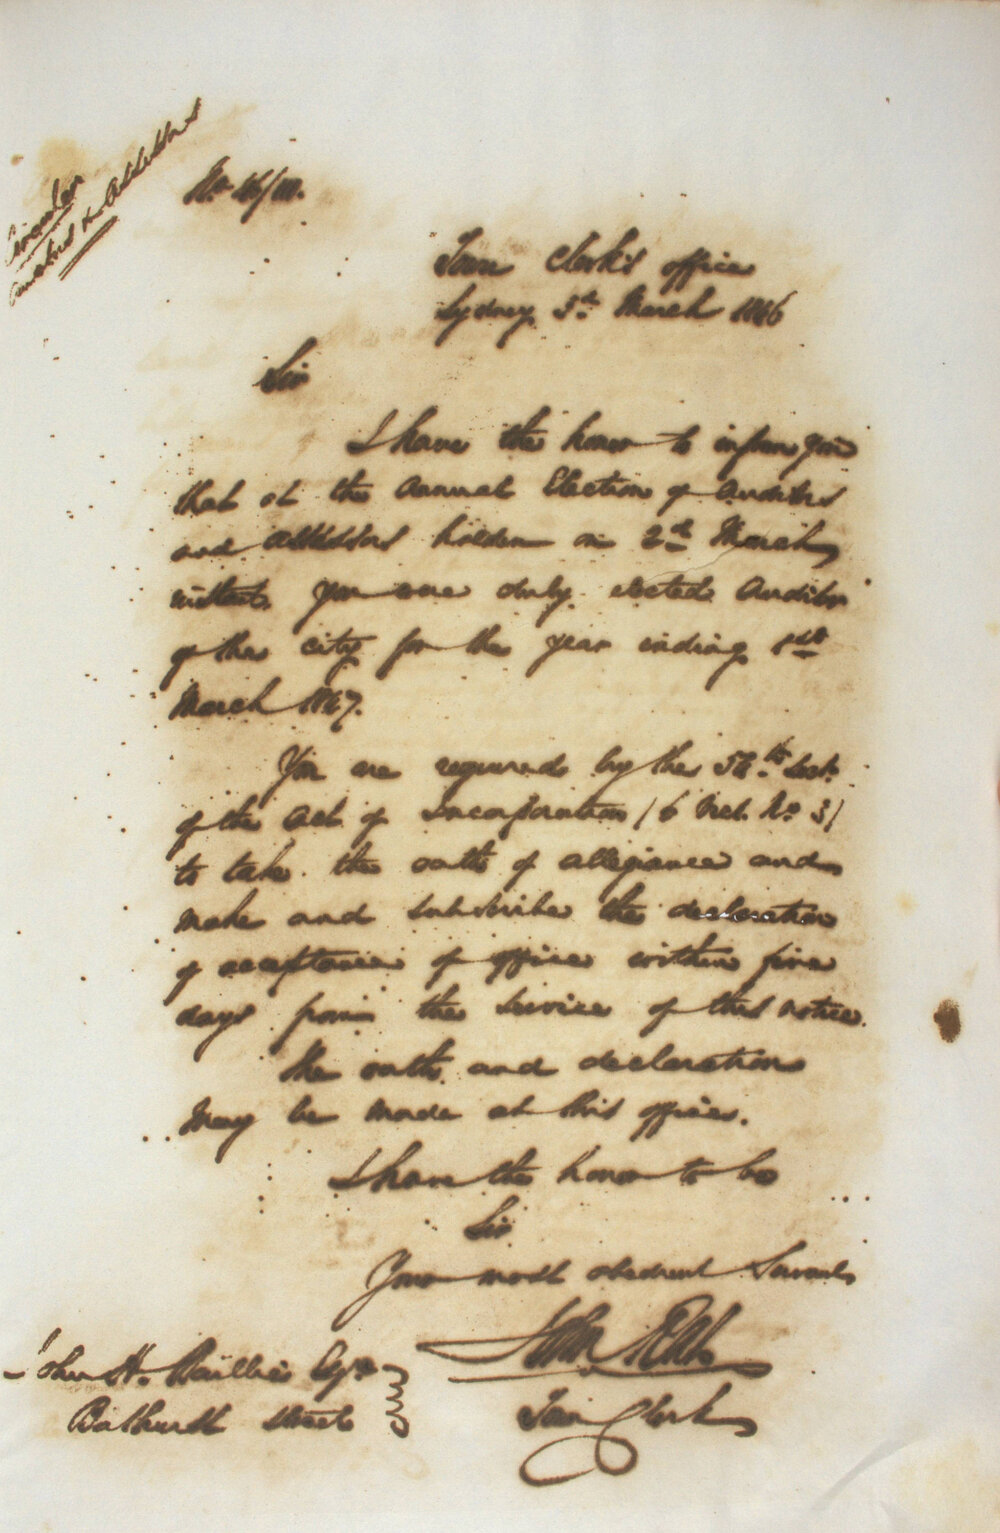 Circular
Auditors & Assessors
No.
Town Clerk's office
Sydney 3rd March 1866
Sir
I have the honor to inform you
that at the Annual Election of Auditors
and Assessors holden on 2nd March
instant, you were duly elected Auditor
of this city for the year ending 1st
March 1867.
You are required by the 56th Sect.
of the Act of Incorporation (6 Vict. No 3)
to take the oath of allegiance and
make and subscribe the declaration
of acceptance of office within five
days from the service of this notice.
The oath and declaration
may be made at this office.
I have the honor to be
Sir
Your most obedient Servant
John
Town Clerk
John H. Baillie Esqre
Bathurst Street